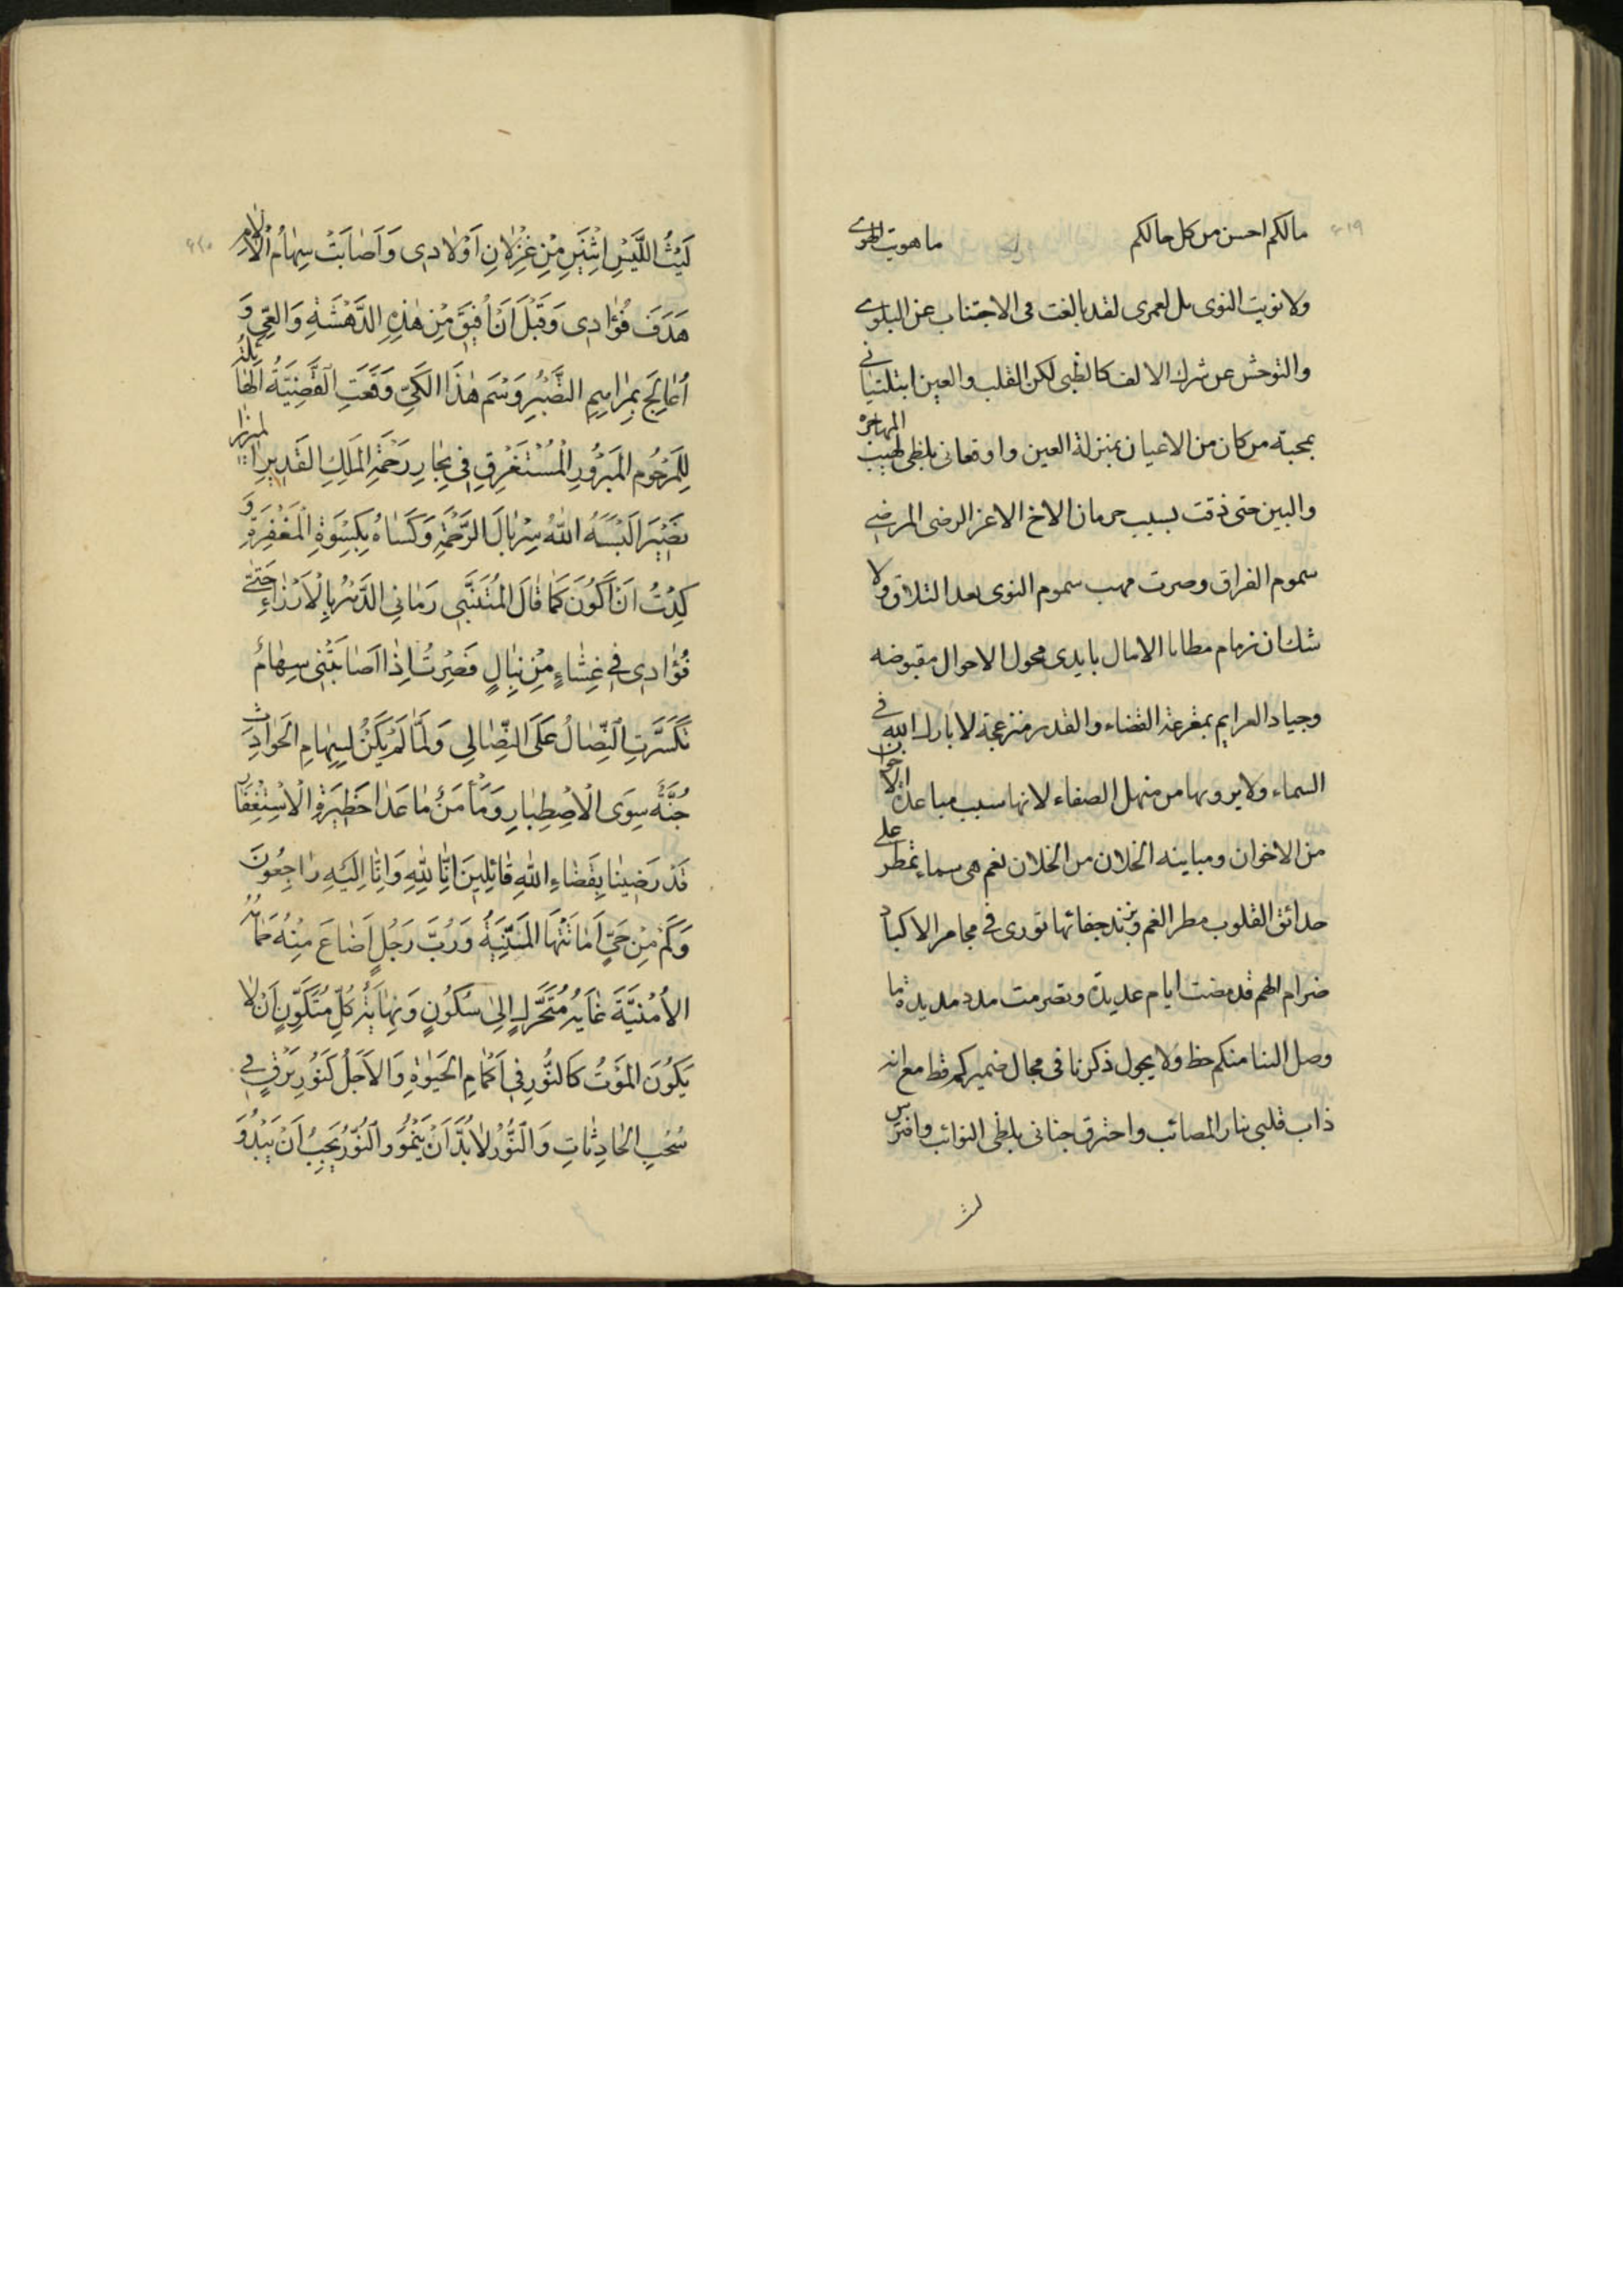 ۶۱۹
مالكم احسن من كل حالكم ما هويت الهوى
ولا نويت النوى بل لعمرى لقد بالغت فى الاجتناب عن البلوى
والتوحش عن شرك الالف كالظبى لكن القلب والعين ابتلتيانى
بمحبة من كان من الاعيان بمنزلة العين واوقعانى بلظى لهيب المهاجرة
والبين حتى ذقت بسبب حرمان الاخ الاعز الرضى المرضى
سموم الفراق وصرت مهب سموم النوى بعد التلاق ولا
شك ان زمام مطايا الامال بايدى محول الاحوال مقبوضه
وجياد العزايم بمقرعة القضاء والقدر منزعجة لا بارك الله فى
السماء ولا يرويها من منهل الصفاء لانها سبب مباعدة الاخوان
من الاخوان ومباينه الخلان من الخلان نعم هى سماء تمطر على
حدائق القلوب مطر الغم وبزند جفائها تورى فى مجامر الاكباد
ضرام الهم قد مضت ايام عديدة وتصرمت مدد مديدة ما
وصل الينا منكم حظ ولا يجول ذكرنا فى مجال ضميركم قط مع انه
ذاب قلبى بنار المصائب واحترق جنانى بلظى النوائب وافترس
ليث
۶۲۰
لَيْثُ اللَّيْسِ اثْنَيْنِ مِنْ غِزْلَانِ اَوْلَادِى وَاَصَابَتْ سِهَامُ الْآلَامِ
هَدَفَ فُؤَادِى وَقَبْلَ اَنْ اُفِيقَ مِنْ هٰذِهِ الدَّهْشَةِ وَالْعِىِّ وَ
اُعَالِجَ بِمَرَاهِيمِ الصَّبْرِ وَسْمَ هٰذَا الْكَىِّ وَقَعَتِ الْقَضِيَّةُ الْهَائِلَةُ
لِلْمَرْحُومِ الْمَبْرُورِ الْمُسْتَغْرِقِ فِى بِحَارِ رَحْمَةِ الْمَلِكِ الْقَدِيرِ الميرزا
نَصِيرَ اَلْبَسَهُ اللّٰهُ سِرْبَالَ الرَّحْمَةِ وَكَسَاهُ بِكِسْوَةِ الْمَغْفِرَةِ وَ
كِدْتُ اَنْ اَكُونَ كَمَا قَالَ الْمُتَنَبِّى رَمَانِى الدَّهْرُ بِالْاَرْزَاءِ حَتّٰى
فُؤَادِى فِى غِشَاءٍ مِنْ نِبَالٍ فَصِرْتُ اِذَا اَصَابَتْنِى سِهَامٌ
تَكَسَّرَتِ النِّصَالُ عَلَى النِّصَالِ وَلَمَّا لَمْ يَكُنْ لِسِهَامِ الْحَوَادِثِ
جُنَّةٌ سِوَى الْاِصْطِبَارِ وَمَأْمَنٌ مَا عَدَا حَظِيرَةِ الْاِسْتِغْفَارِ
قَدْ رَضِينَا بِقَضَاءِ اللّٰهِ قَائِلِينَ اِنَّا لِلّٰهِ وَاِنَّا اِلَيْهِ رَاجِعُونَ
وَكَمْ مِنْ حَىٍّ اَمَاتَتْهَا الْمَنِيَّةُ وَرُبَّ رَجُلٍ اَضَاعَ مِنْهُ حِمَامُهُ
الْاُمْنِيَّةَ غَايَةُ مُتَحَرِّكٍ اِلٰى سُكُونٍ وَنِهَايَةُ كُلِّ مُتَكَوِّنٍ اَنْ لَا
يَكُونَ الْمَوْتُ كَالنَّوْرِ فِى اَكْمَامِ الْحَيٰوةِ وَالْاَجَلُ كَنُورِ بَرْقٍ فِى
سُحُبِ الْحَادِثَاتِ وَالنَّوْرُ لَا بُدَّ اَنْ يَنْمُوَ وَالنُّورُ يَجِبُ اَنْ يَبْدُوَ